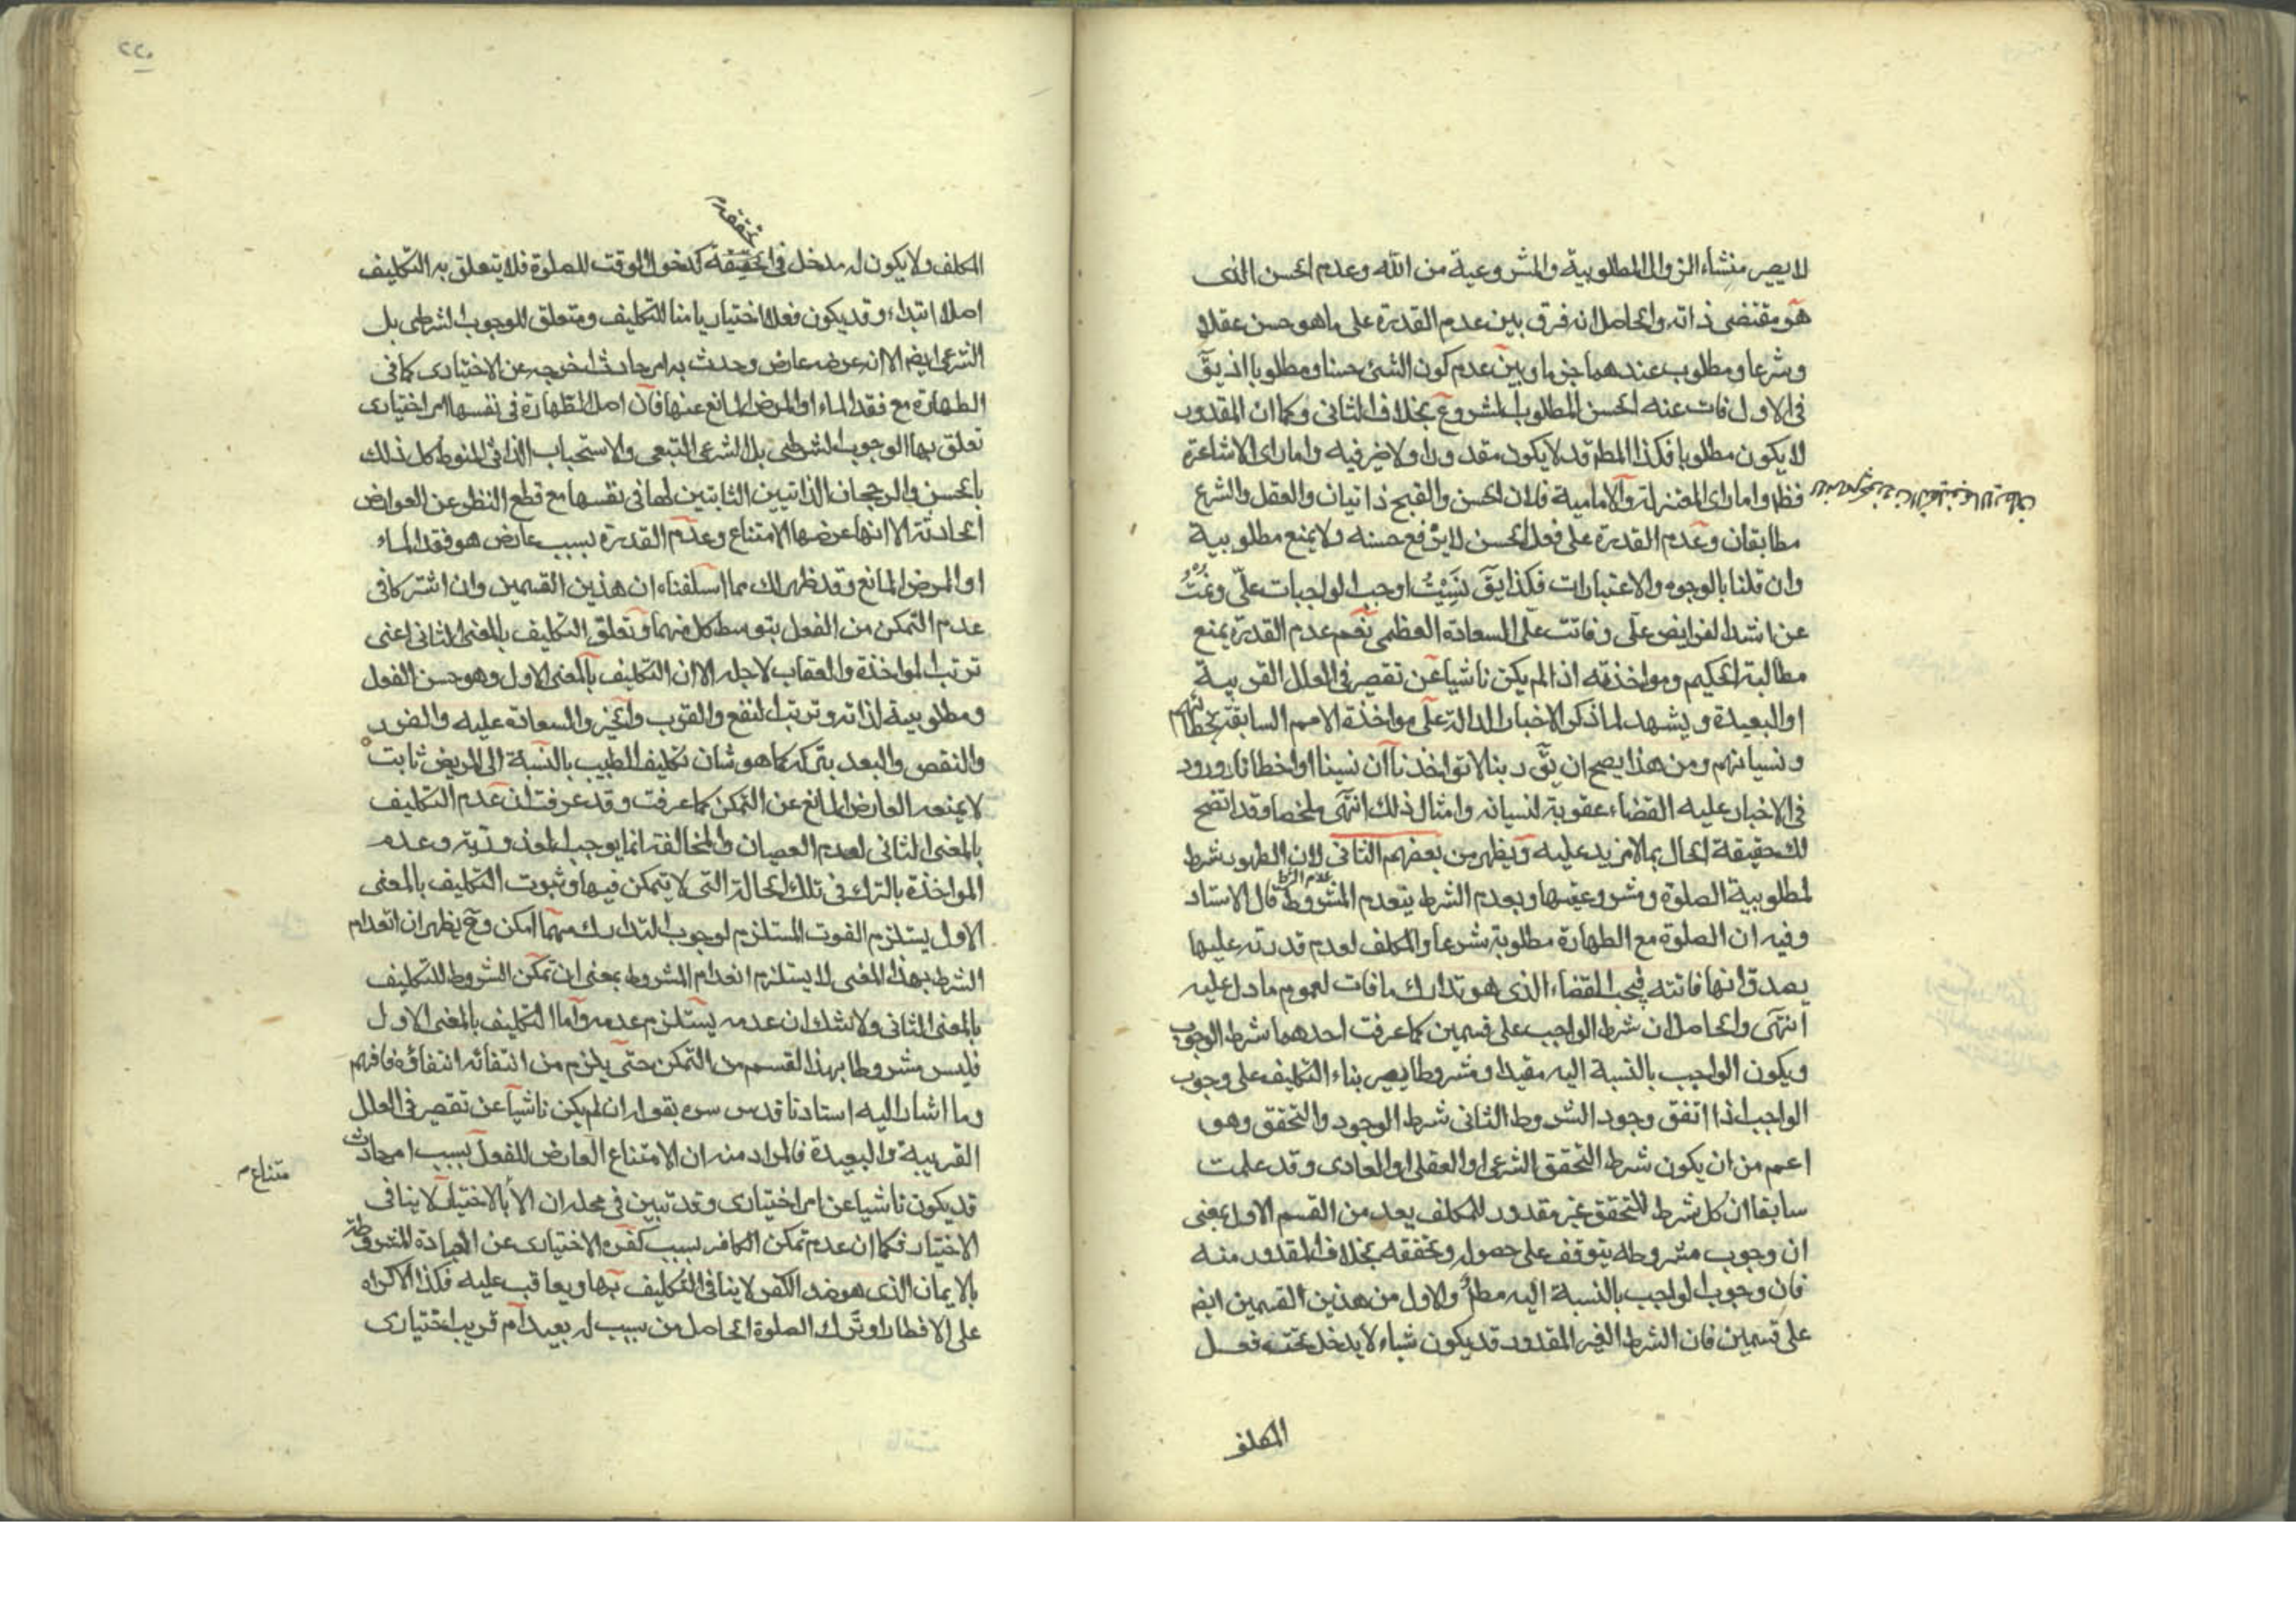 لا يصير منشاء الزوال المطلوبية والمشروعية من الله وعدم الحسن الذى
هو مقتضى ذاته والحاصل انه فرق بين عدم القدرة على ما هو حسن عقلا
وشرعا ومطلوب عندهما جزما وبين عدم كون الشئ حسنا ومطلوبا اذ يق
فى الاول فات عنه الحسن المطلوب المشروع بخلاف الثانى وكما ان المقدور
لا يكون مطلوبا فكذا المط قد لا يكون مقدورا ولا ضير فيه واما راى الاشاعرة
فظ واما راى المعتزلة والامامية فلان الحسن والقبح ذاتيان والعقل والشرع
مطابقان وعدم القدرة على فعل الحسن لا يرفع حسنه ولا يمنع مطلوبية
وان قلنا بالوجوه والاعتبارات فكذا يق نسيت اوجب الواجبات على ونمت
عن اشد الفرايض على وفاتت على السعادة العظمى نعم عدم القدرة يمنع
مطالبة الحكيم ومواخذته اذا لم يكن ناشيا عن تقصير فى العلل القريبة
او البعيدة ويشهد لما ذكر الاخبار الدالة على مواخذة الامم السابقة بخطائهم
ونسيانهم ومن هذا يصح ان يق ربنا لا تواخذنا ان نسينا او اخطانا وورود
فى الاخبار عليه القضاء عقوبة لنسيانه وامثال ذلك انتهى ملخصا وقد اتضح
لك حقيقة الحال بما لا مزيد عليه ويظهر من بعضهم الثانى لان الطهور شرط
لمطلوبية الصلوة ومشروعيتها وبعدم الشرط ينعدم المشروط قال الاستاد
عدم الشرط
وفيه ان الصلوة مع الطهارة مطلوبة شرعا والمكلف لعدم قدرته عليها
يصدق انها فاتته فيجب القضاء الذى هو تدارك ما فات لعموم ما دل عليه
انتهى والحاصل ان شرط الواجب على قسمين كما عرفت احدهما شرط الوجوب
ويكون الواجب بالنسبة اليه مقيدا ومشروطا يصير بناء التكليف على وجوب
الواجب اذا اتفق وجود الشروط الثانى شرط الوجود والتحقق وهو
اعم من ان يكون شرط التحقق الشرعى او العقلى او العادى وقد علمت
سابقا ان كل شرط للتحقق غير مقدور للمكلف يعد من القسم الاول يعنى
ان وجوب مشروطه يتوقف على حصوله وتحققه بخلاف المقدور منه
فان وجوب الواجب بالنسبة اليه مط والاول من هذين القسمين ايض
على قسمين فان الشرط الغير المقدور قد يكون شياء لا يدخل تحته فعل
المكلف
٢٢٠
تحققه
المكلف ولا يكون له مدخل فى الحقيقة كدخول الوقت للصلوة فلا يتعلق به التكليف
اصلا ابتداء وقد يكون فعلا اختياريا منا للتكليف ومتعلق للوجوب الشرطى بل
الشرعى ايضم الا انه عرضه عارض وحدث به امر حادث اخرجه عن الاختيارى كما فى
الطهارة مع فقد الماء او المرض المانع عنها فان اصل الطهارة فى نفسها امر اختيارى
تعلق بها الوجوب الشرطى بل الشرعى التبعى والاستحباب الذاتى المنوط كل ذلك
بالحسن والرجحان الذاتيين الثابتين لها فى نفسها مع قطع النظر عن العوارض
الحادثة الا انها عرضها الامتناع وعدم القدرة بسبب عارض هو فقد الماء
او المرض المانع وقد ظهر لك مما اسلفناه ان هذين القسمين وان اشتركا فى
عدم التمكن من الفعل بتوسط كل منهما وتعلق التكليف بالمعنى الثانى اعنى
ترتب المواخذة والعقاب لاجله الا ان التكليف بالمعنى الاول وهو حسن الفعل
ومطلوبية لذاته وترتب النفع والقرب والخير والسعادة عليه والضرر
والنقص والبعد بتركه كما هو شان تكليف الطبيب بالنسبة الى المريض ثابت
لا يمنعه العارض المانع عن التمكن كما عرفت وقد عرفت ان عدم التكليف
بالمعنى الثانى لعدم العصيان والمخالفة انما يوجب المعذورية وعدم
المواخذة بالترك فى تلك الحالة التى لا يتمكن فيها وثبوت التكليف بالمعنى
الاول يستلزم الفوت المستلزم لوجوب التدارك مهما امكن وح يظهر ان انعدام
الشرط بهذا المعنى لا يستلزم انعدام المشروط بمعنى ان تمكن الشروط للتكليف
بالمعنى الثانى ولا شك ان عدمه يستلزم عدمه واما التكليف بالمعنى الاول
فليس مشروطا بهذا القسم من التمكن حتى يلزم من انتفائه انتفاؤه فافهم
وما اشار اليه استادنا قدس سره بقوله ان لم يكن ناشيا عن تقصير فى العلل
القريبة والبعيدة فالمراد منه ان الامتناع العارض للفعل بسبب امر حادث
قد يكون ناشيا عن امر اختيارى وقد تبين فى محله ان الا بالاختيار لا ينافى
متناع م
الاختيار فكما ان عدم تمكن الكافر بسبب كفره الاختيارى عن العبادة المشروطة
بالايمان الذى هو ضد الكفر لا ينافى التكليف بها ويعاقب عليه فكذا الاكراه
على الافطار او ترك الصلوة الحاصل من سبب له بعيد ام قريب اختيارى